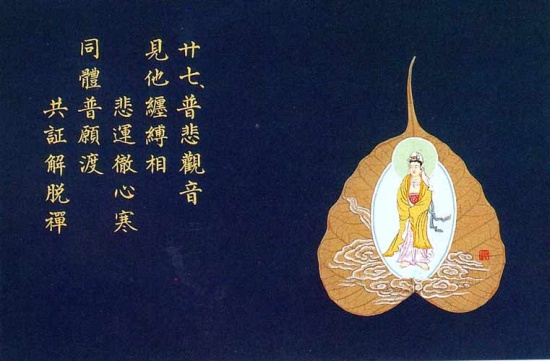 廿七、普悲觀音
見他纏縛相
悲運徹心寒
同體普願渡
共証解脱禪